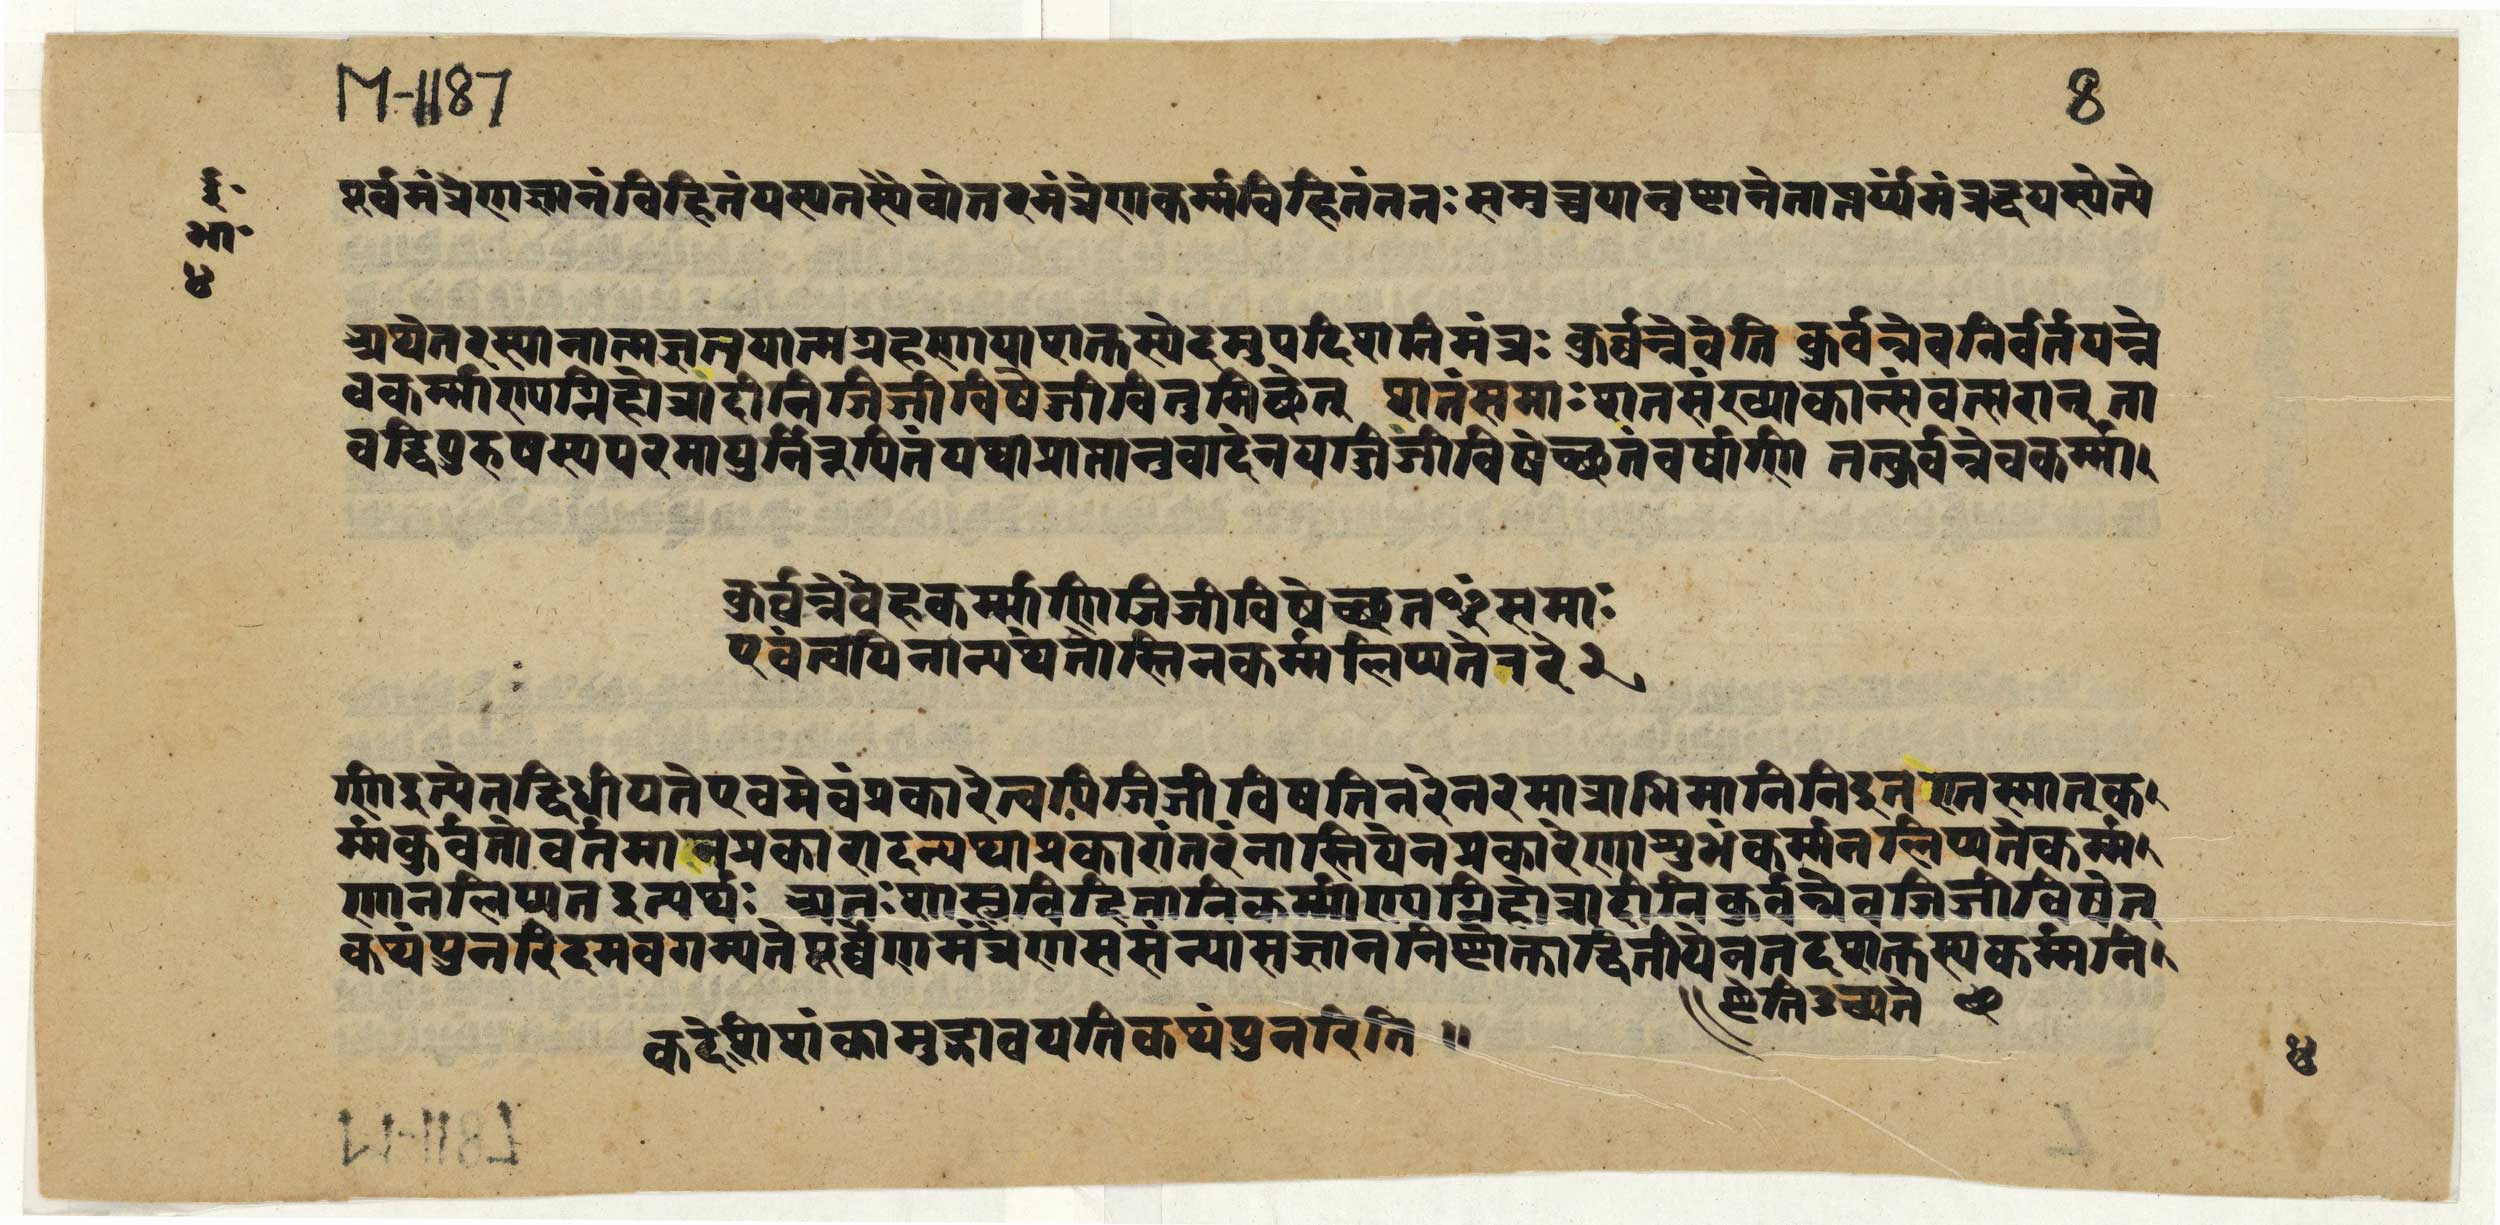 M-1187
8
ई॰
भा॰
४
पूर्वमंत्रेणज्ञानंविहितंयस्यतस्यैवोत्तरमंत्रेणकर्म्मविहितंततः समुच्चयानुष्ठानेतात्पर्य्यमंत्रद्वयस्येत्ये
अथेतरस्यानात्मज्ञतयात्मग्रहणायाशक्तस्येदमुपदिशतिमंत्रः कुर्व्वन्नेवेति कुर्वन्नेवनिर्वर्तयन्ने
वकर्म्माण्यग्निहोत्रादीनिजिजीविषेज्जीवितुमिच्छेत् शतंसमाः शतसंख्याकान्संवत्सरान् ता
वद्धिपुरुषस्यपरमायुर्निरूपितंयथाप्राप्तानुवादेनयज्जिजीविषेच्छतंवर्षाणि तत्कुर्वन्नेवकर्म्मा
कुर्व्वन्नेवेहकर्म्माणिजिजीविषेच्छतꣳसमाः
एवंत्वयिनान्यथेतोस्तिनकर्म्मलिप्यतेनरे २
णिइत्येतद्विधीयतेएवमेवंप्रकारेत्वयिजिजीविषतिनरेनरमात्राभिमानिनिइत एतस्मात्क
र्म्मकुर्वतोवर्तमानप्रकारादन्यथाप्रकारांतरंनास्तियेनप्रकारेणाशुभंकर्म्मनलिप्यतेकर्म्म
णानलिप्यतइत्यर्थः अतः शास्त्रविहितानिकर्म्माण्यग्निहोत्रादीनिकुर्वन्नेवजिजीविषेत्
कथंपुनरिदमवगम्यतेपूर्व्वेणमंत्रेणससंन्यासज्ञाननिष्ठोक्ताद्वितीयेनतदशक्तस्यकर्म्मनि
ष्ठेतिउच्यते
कदेशिशंकामुद्भावयतिकथंपुनरिति ॥
४